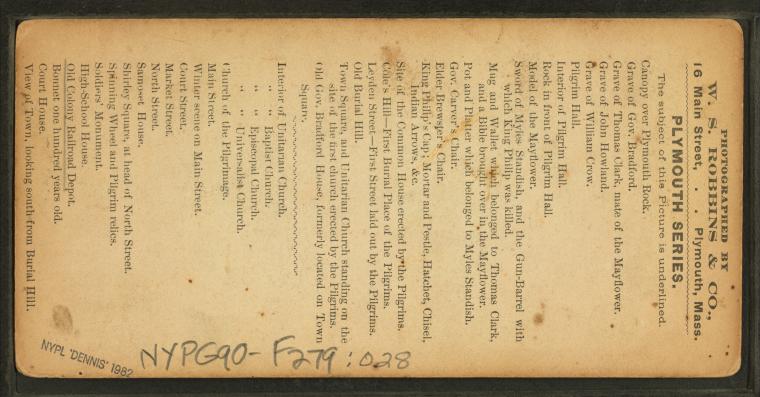 PHOTOGRAPHED BY
W. S. ROBBINS & CO.,
16 Main Street, . . Plymouth, Mass.
PLYMOUTH SERIES.
The subject of this Picture is underlined.
Canopy over Plymouth Rock.
Grave of Gov. Bradford.
Grave of Thomas Clark, mate of the Mayflower.
Grave of John Howland.
Grave of William Crow.
Pilgrim Hall.
Interior of Pilgrim Hall.
Rock in front of Pilgrim Hall.
Model of the Mayflower.
Sword of Myles Standish, and the Gun-Barrel with
which King Philip was killed.
Mug and Wallet which belonged to Thomas Clark,
and a Bible brought over in the Mayflower.
Pot and Platter which belonged to Myles Standish.
Gov. Carver's Chair.
Elder Brewster's Chair.
King Philip's Cap; Mortar and Pestle, Hatchet, Chisel,
Indian Arrows, &c.
Site of the Common House erected by the Pilgrims.
Cole's Hill—First Burial Place of the Pilgrims.
Leyden Street—First Street laid out by the Pilgrims.
Old Burial Hill.
Town Square, and Unitarian Church standing on the
site of the first church erected by the Pilgrims.
Old Gov. Bradford House, formerly located on Town
Square.
Interior of Unitarian Church.
" " Baptist Church.
" " Episcopal Church.
" " Universalist Church.
Church of the Pilgrimage.
Main Street.
Winter scene on Main Street.
Court Street.
Market Street.
North Street.
Samoset House.
Shirley Square, at head of North Street.
Spinning Wheel and Pilgrim relics.
Soldiers' Monument.
High-School House.
Old Colony Railroad Depot.
Bonnet one hundred years old.
Court House.
View of Town, looking south from Burial Hill.
NYPL "DENNIS" 1982
NYPG90-F279:028